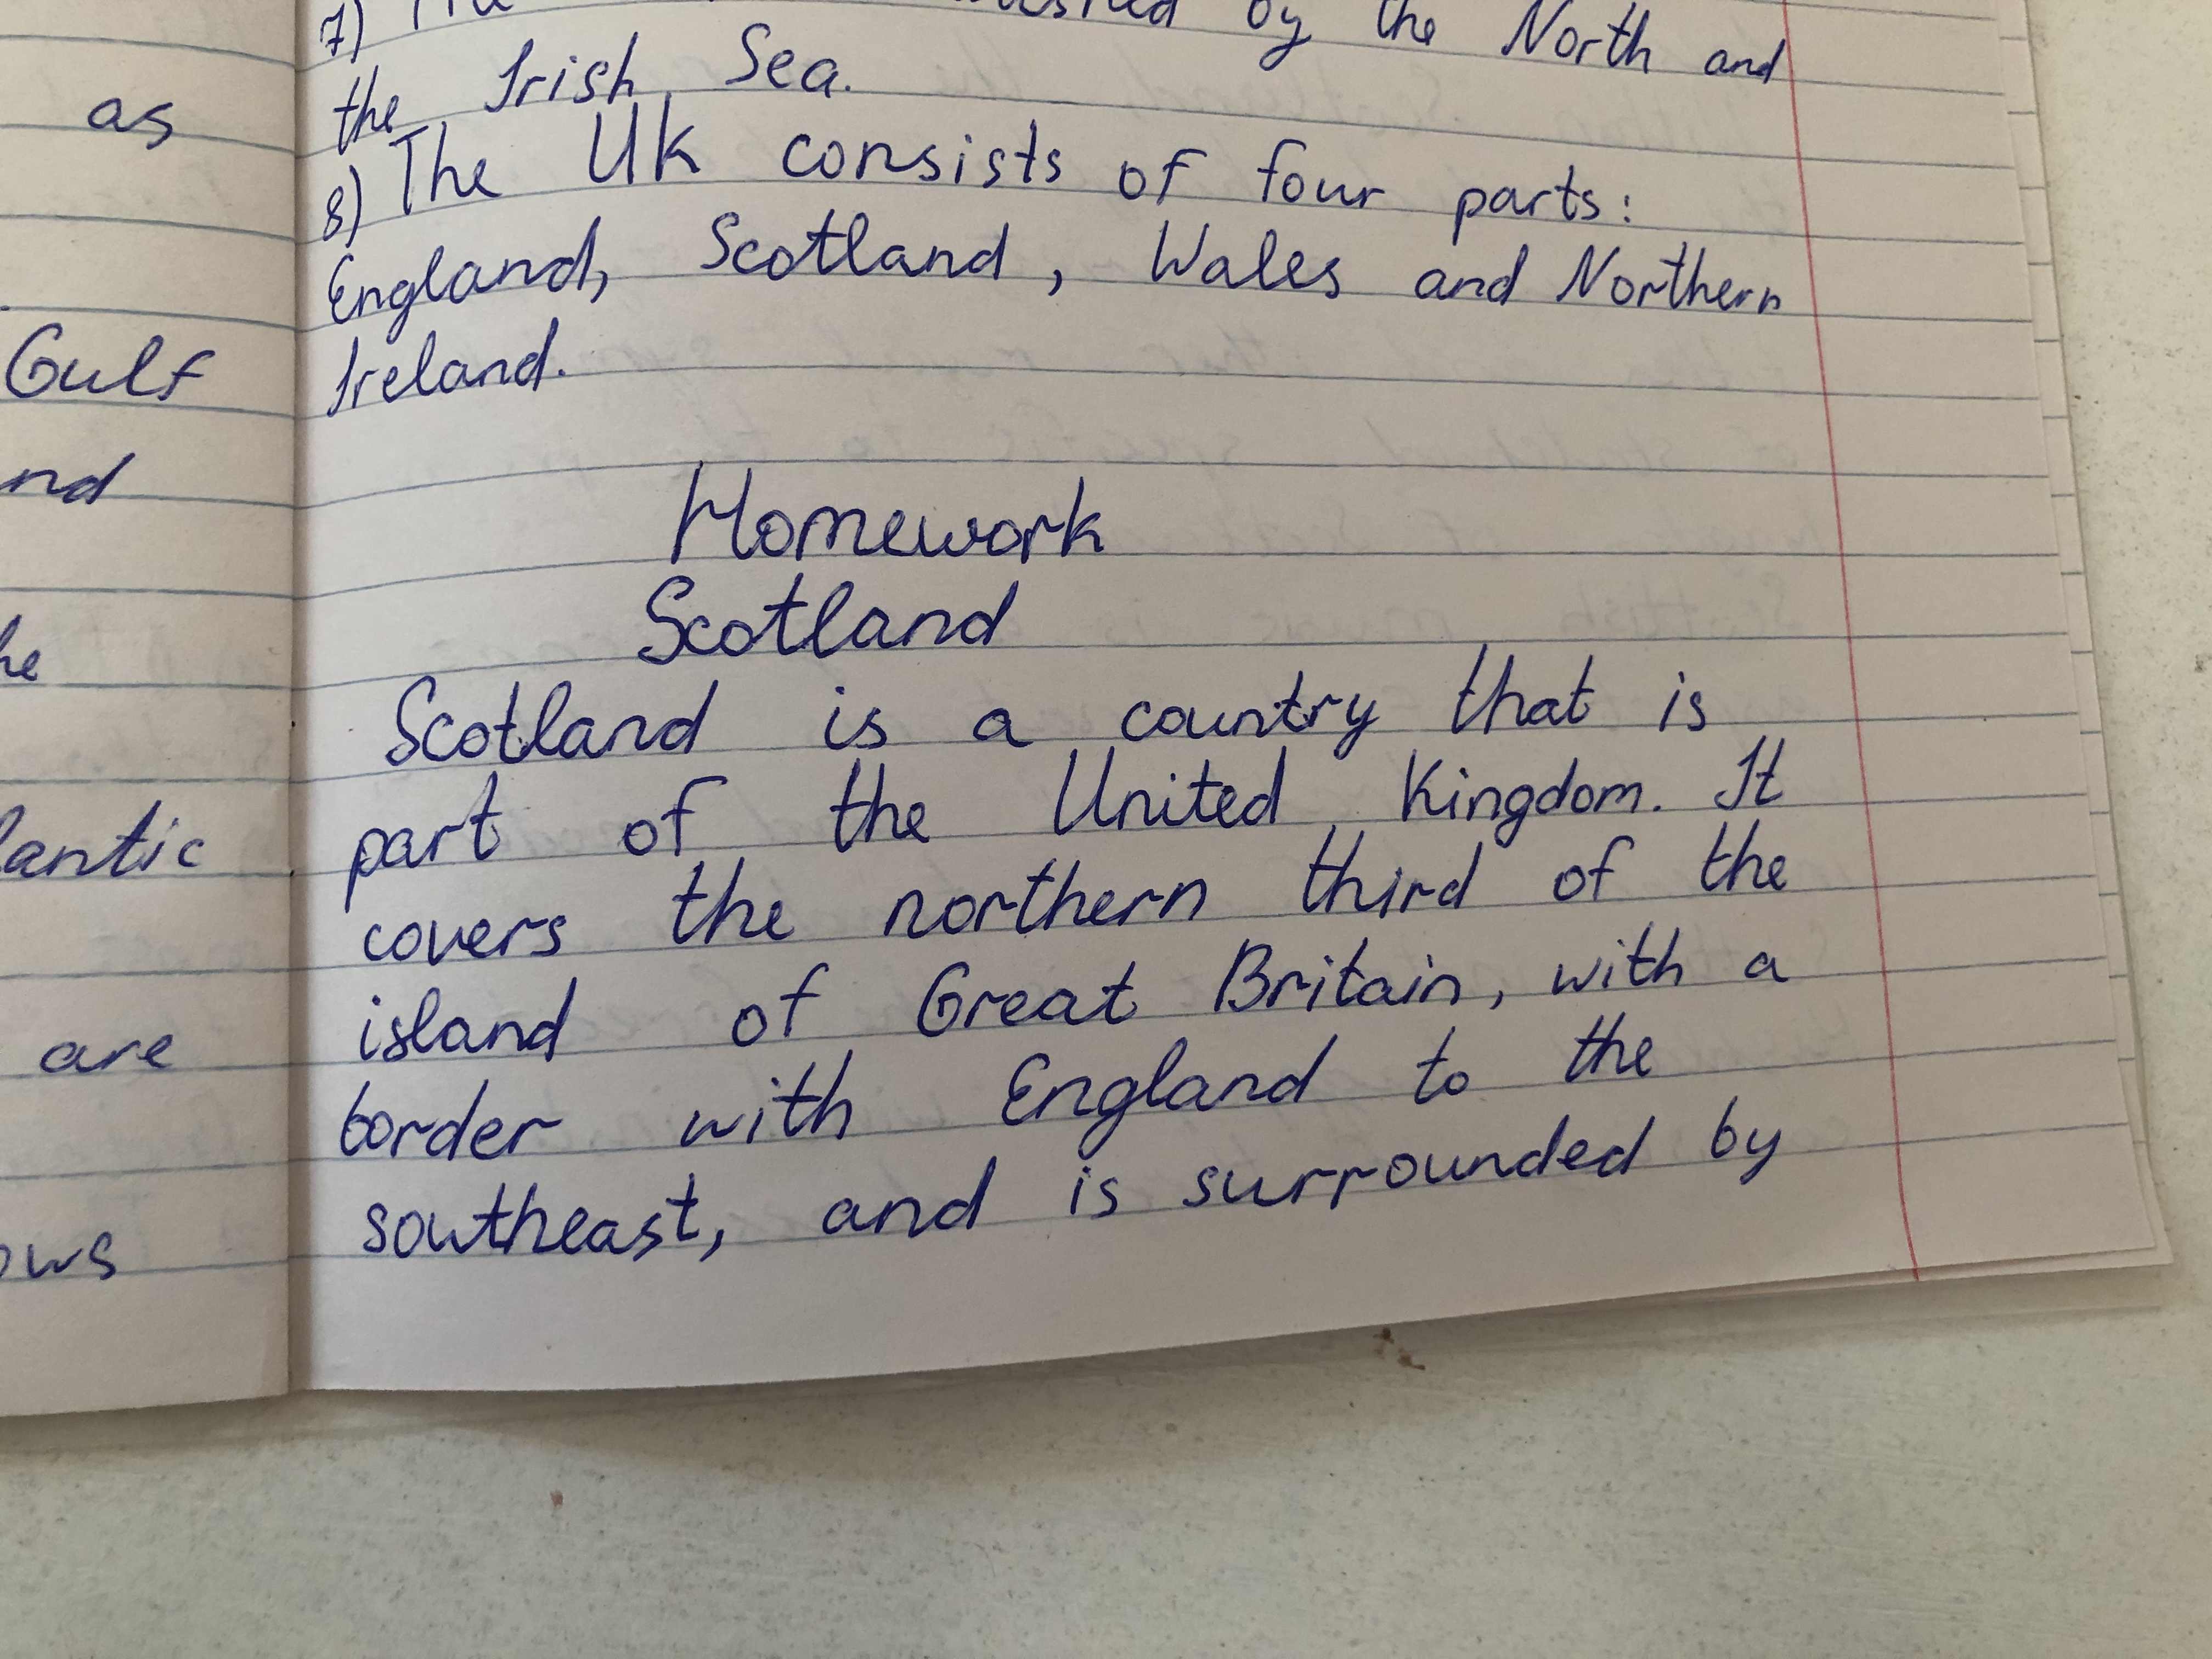 as
Gulf
nd
he
lantic
are
ows
7) by the North and
the Irish Sea.
8) The UK consists of four parts:
England, Scotland, Wales and Northern
Ireland.
Homework
Scotland
Scotland is a country that is
part of the United Kingdom. It
covers the northern third of the
island of Great Britain, with a
border with England to the
southeast, and is surrounded by